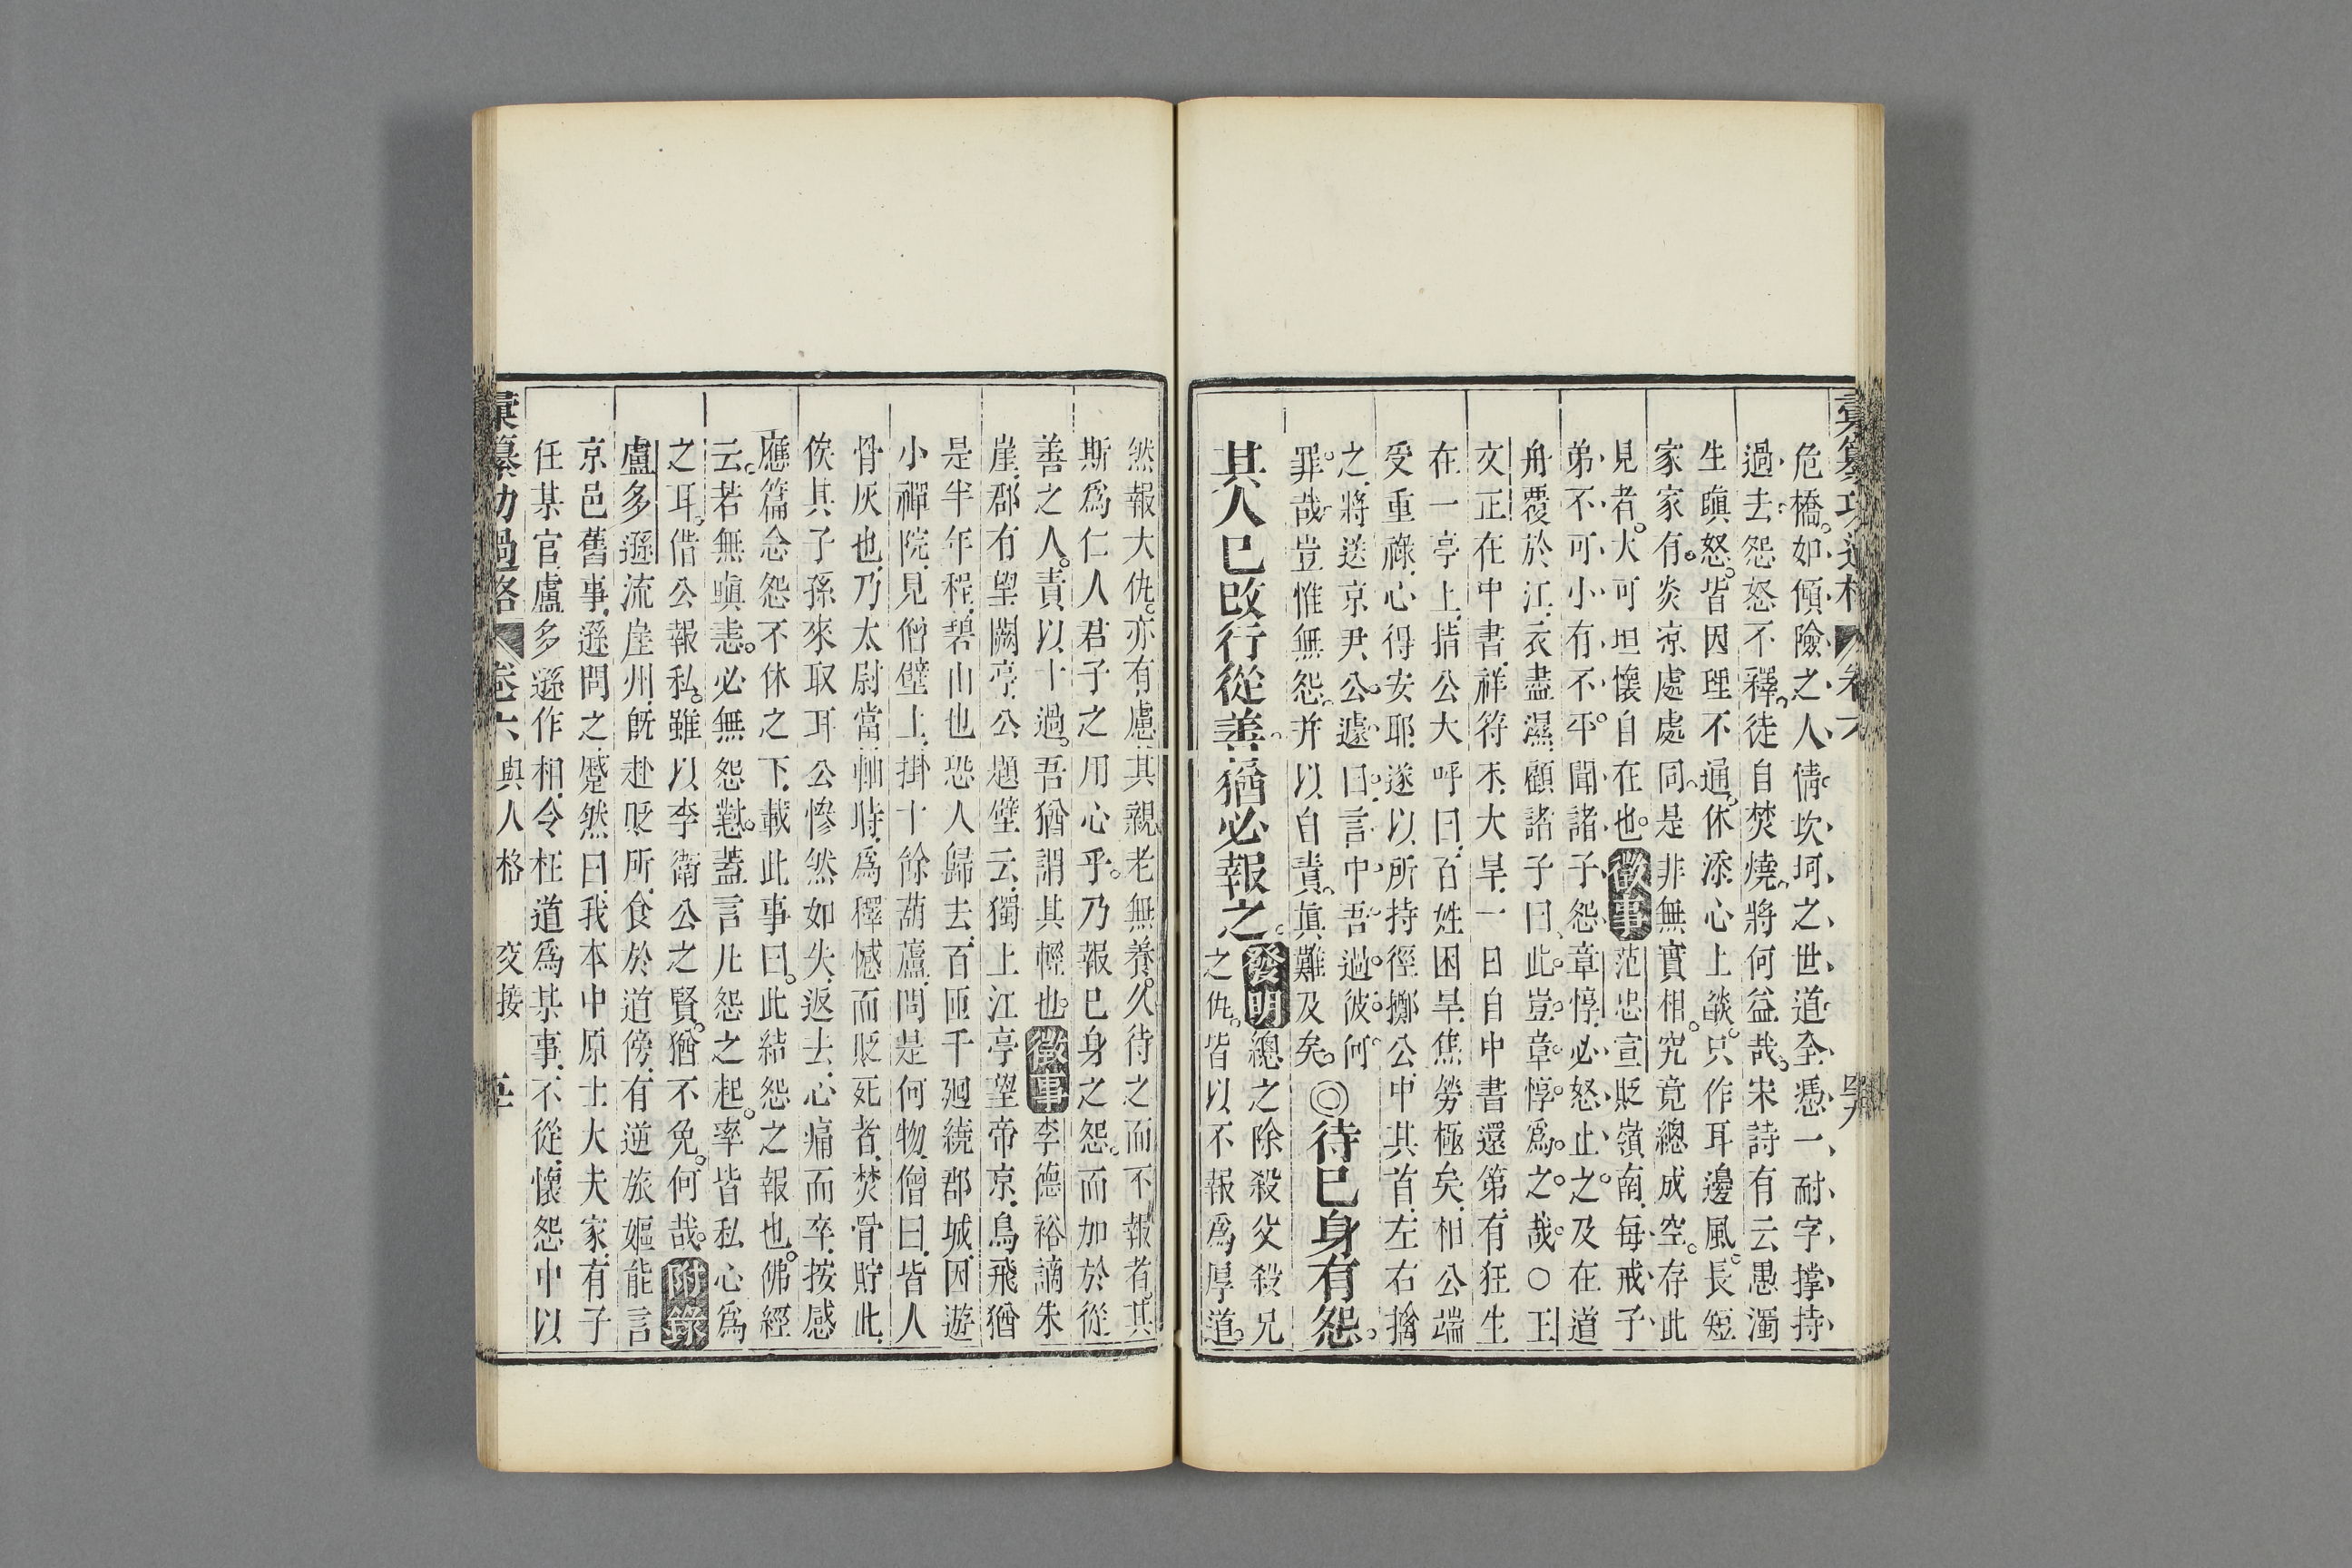 危橋。如傾險之人情坎坷之世道全憑一耐字撐持
過去。怨怒不釋。徒自焚燒。將何益哉。宋詩有云愚濁
生瞋怒。皆因理不通。休添心上燄。只作耳邊風。長短
家家有。炎凉處處同。是非無實相。究竟總成空。存此
見者。大可坦懷自在也。徵事范忠宣貶嶺南。每戒子
弟不可小有不平。聞諸子怨章惇。必怒止之。及在道
舟覆於江。衣盡濕。顧諸子曰。此豈章惇爲之哉。○王
文正在中書。祥符末大旱。一日自中書還第。有狂生
在一亭上。指公大呼曰。百姓困旱。焦勞極矣。相公端
受重祿。心得安耶。遂以所持徑擲公。中其首。左右擒
之。將送京尹。公遽曰。言中吾過。彼何
罪哉。豈惟無怨。并以自責。眞難及矣。◎待已身有怨。
其人已改行從善。猶必報之。發明總之除殺父殺兄
之仇。皆以不報爲厚道。
然報大仇。亦有慮其親老無養。久待之而不報者。其
斯爲仁人君子之用心乎。乃報已身之怨。而加於從
善之人。責以十過。吾猶謂其輕也。徵事李德裕謫朱
崖。郡有望闕亭。公題壁云。獨上江亭望帝京。鳥飛猶
是半年程。碧山也恐人歸去。百匝千廻繞郡城。因遊
小禪院。見僧壁上。掛十餘葫蘆。問是何物。僧曰。皆人
骨灰也。乃太尉當軸時。爲釋憾而貶死者。焚骨貯此。
俟其子孫來取耳。公慘然如失。返去。心痛而卒。按感
應篇念怨不休之下。載此事曰。此結怨之報也。佛經
云。若無瞋恚。必無怨懟。蓋言凡怨之起。率皆私心爲
之耳。借公報私。雖以李衛公之賢。猶不免。何哉。附錄
盧多遜流崖州。旣赴貶所。食於道傍。有逆旅嫗能言
京邑舊事。遜問之。蹙然曰。我本中原士大夫家。有子
任某官。盧多遜作相。令枉道爲某事。不從。懷怨中以
彙纂功過格 卷六 與人格 交接 五十